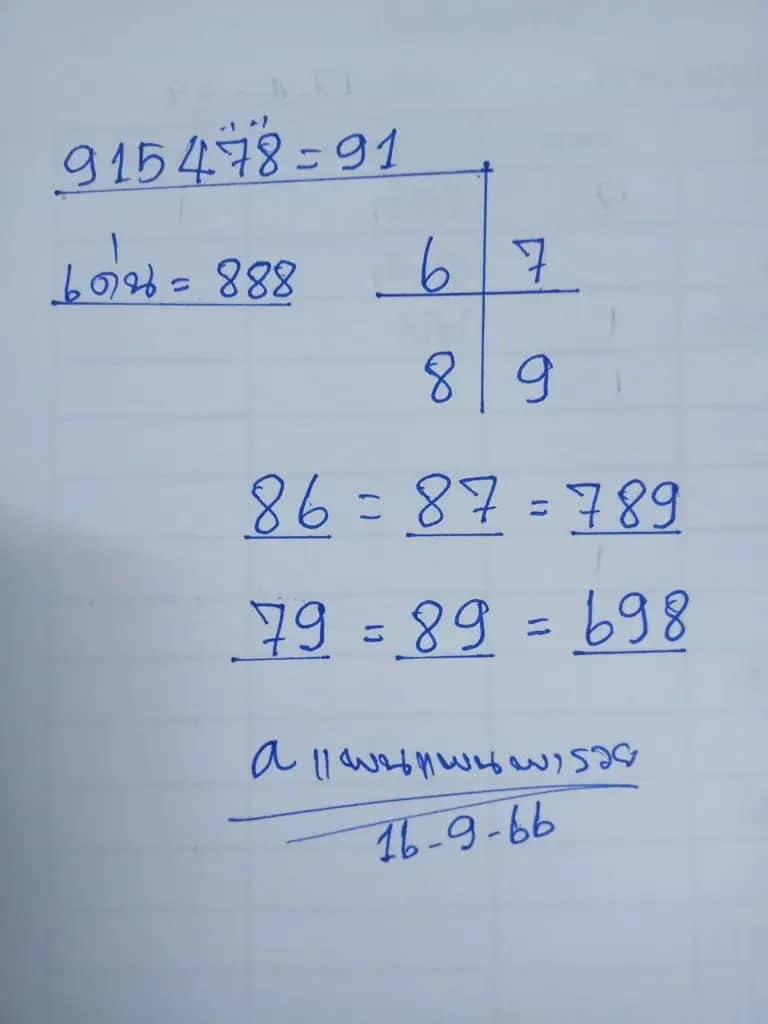 915478 = 91
เด่น = 888
6 7
8 9
86 = 87 = 789
79 = 89 = 698
a แพนแพนพารวย
16-9-66